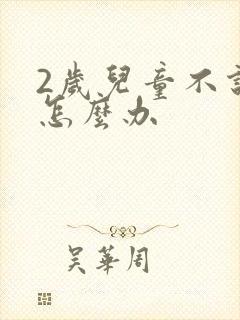 2歲兒童不
怎麼办
吴華周